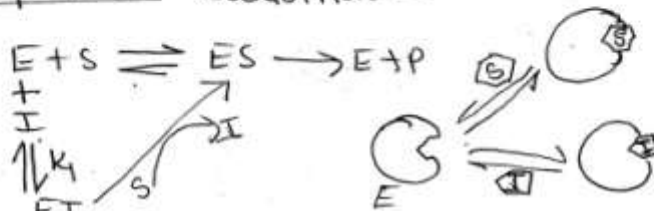 E + S ⇌ ES → E + P
+
I
⇌ K₁
I
S
EI
E
S
S
I
I